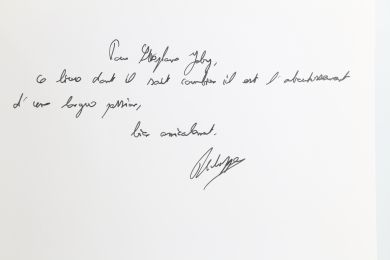 Pour Stéphane Joby,
ce livre dont il sait combien il est l'aboutissement
d'une longue passion,
bien amicalement.
Philippe